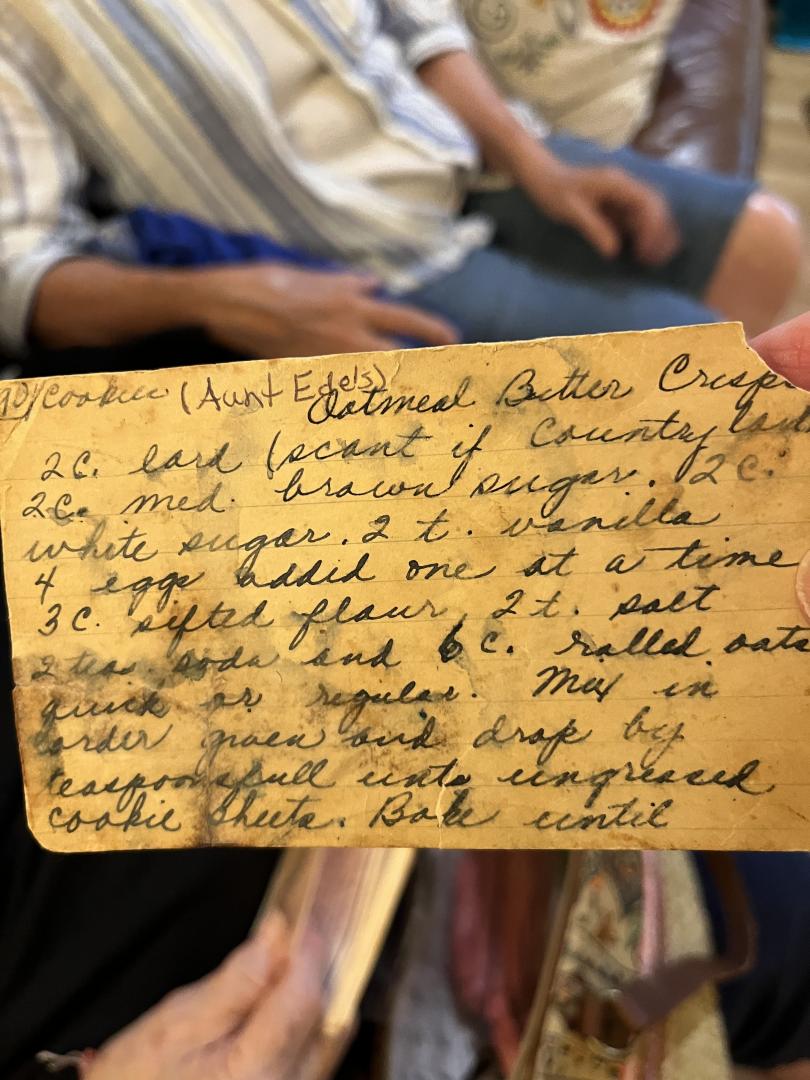 Cookies (Aunt Ede's)
Oatmeal Butter Crisps
2 C. lard (scant if Country lard
2 C. med. brown sugar. 2 C.
white sugar. 2 t. vanilla
4 eggs added one at a time
3 C. sifted flour, 2 t. salt
2 tea. soda and 6 C. rolled oats
quick or regular. Mix in
order given and drop by
teaspoonsfull unto ungreased
cookie sheets. Bake until